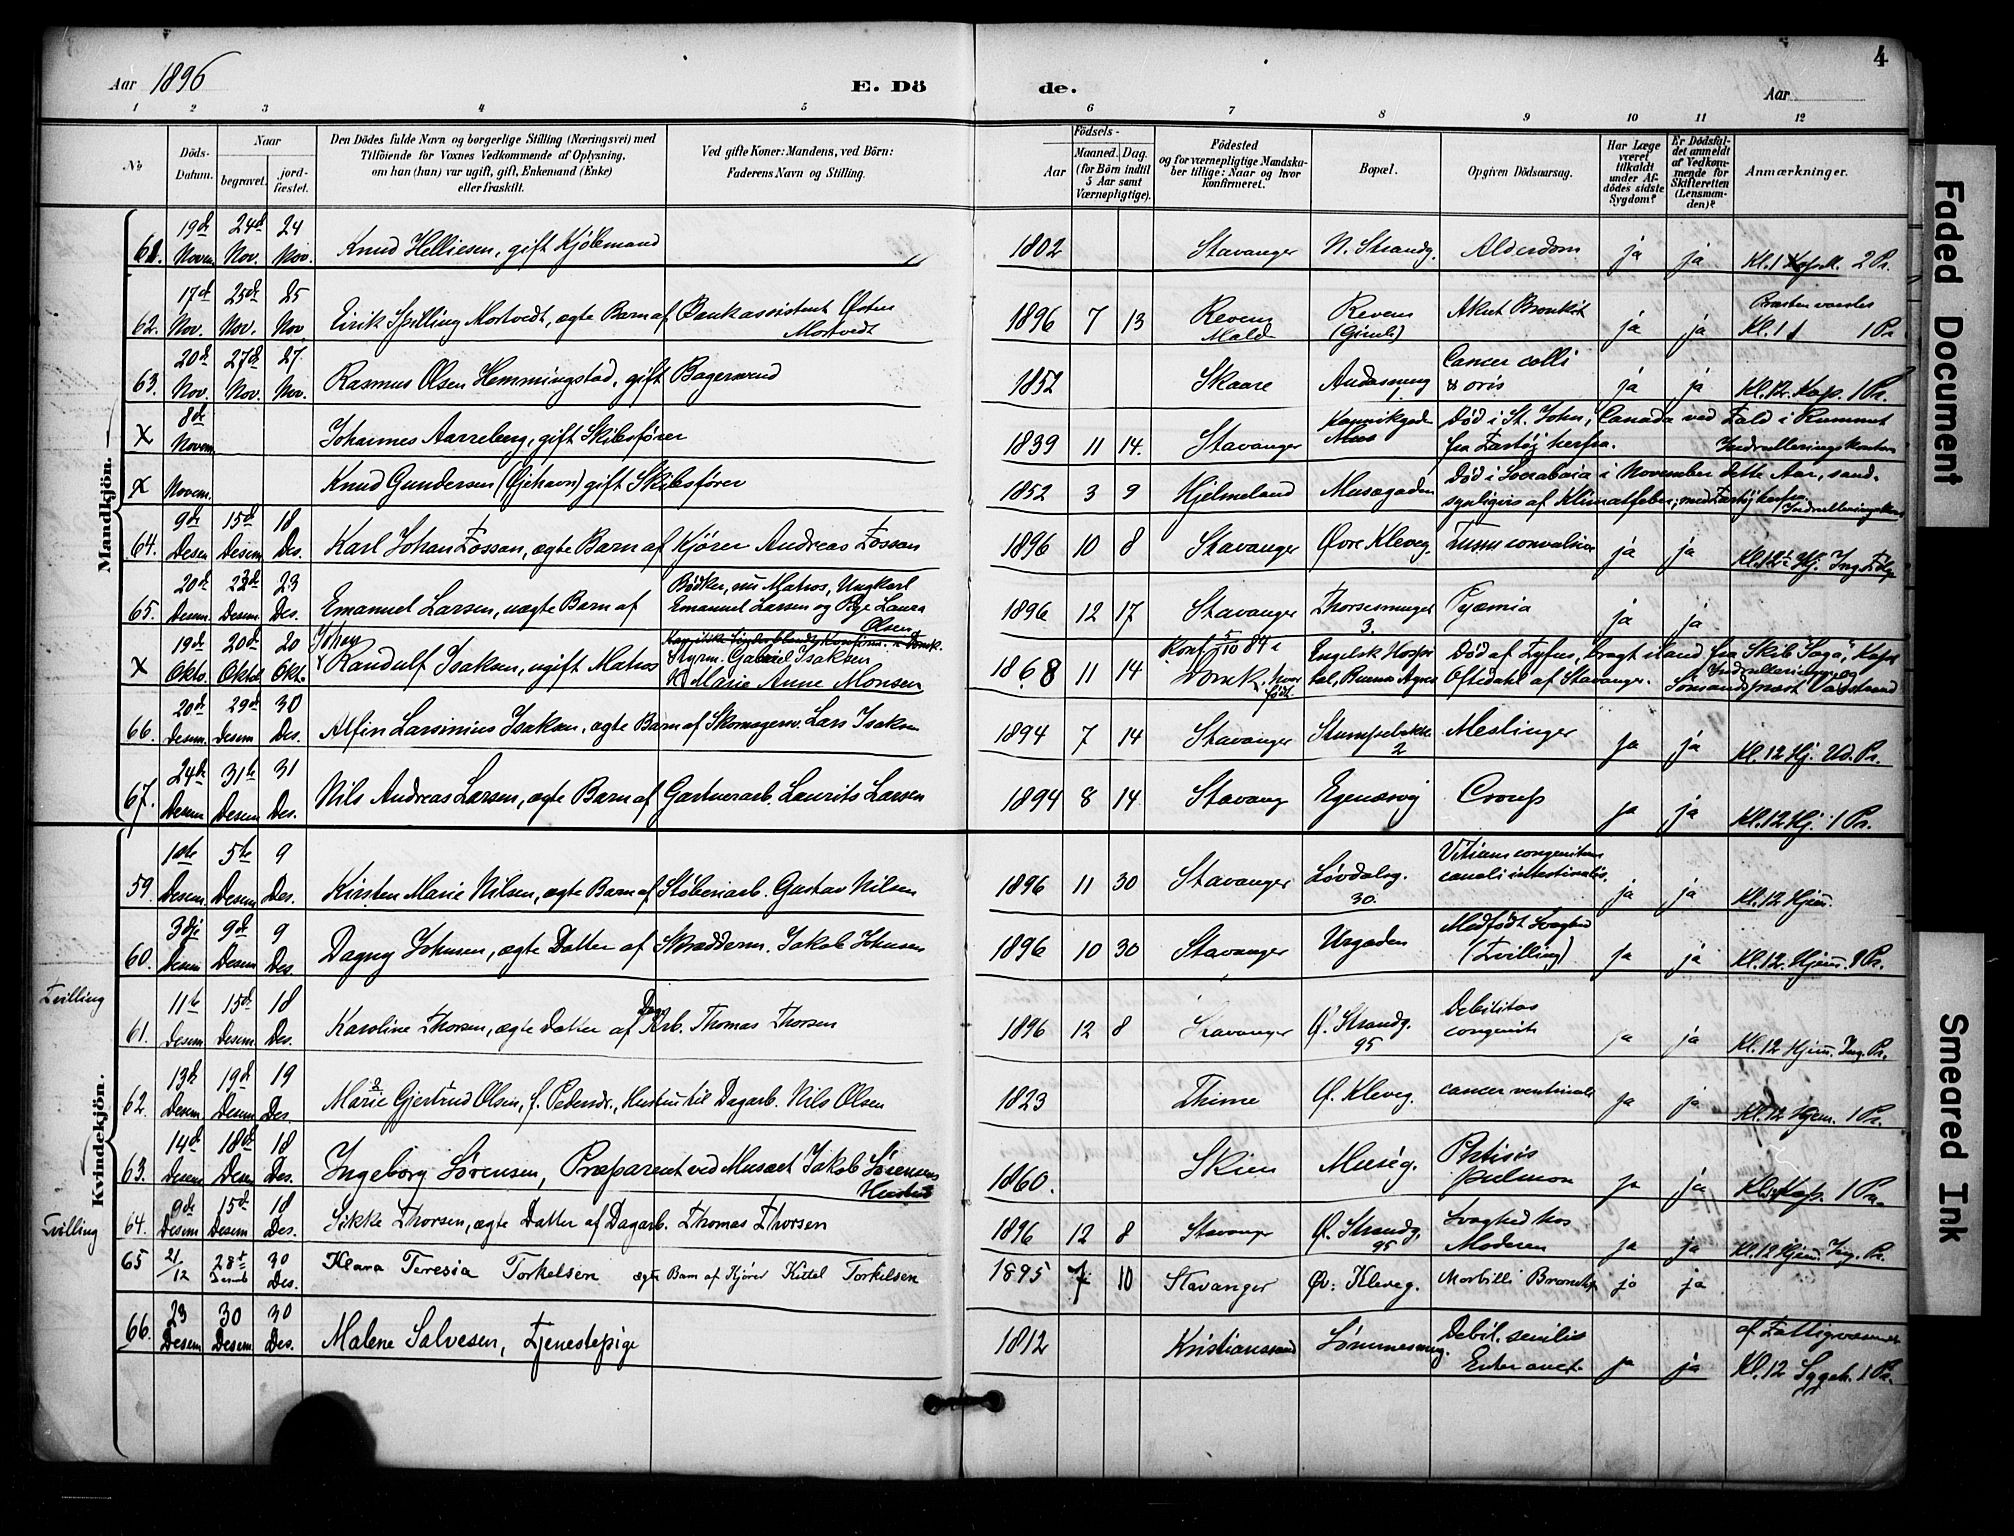 4
Aar 1896 E. Döde. Aar
1 2 3 4 5 6 7 8 9 10 11 12
No
Döds-Datum.
Naar
begravet.
jordfæstet.
Den Dödes fulde Navn og borgerlige Stilling (Næringsvei) med
Tilföiende for Voxnes Vedkommende af Oplysning,
om han (hun) var ugift, gift, Enkemand (Enke)
eller fraskilt.
Ved gifte Koner: Mandens, ved Börn:
Faderens Navn og Stilling.
Födsels-
Aar
Maaned. Dag.
(for Börn indtil
5 Aar samt
Værnepligtige).
Födested
og for værnepligtige Mandska-
ber tillige: Naar og hvor
konfirmeret.
Bopæl.
Opgiven Dödsaarsag.
Har Læge
været
tilkaldt
under Af-
dödes sidste
Sygdom?
Er Dödsfal-
det anmeldt
af Vedkom-
mende for
Skifteretten
(Lensman-
den)?
Anmærkninger.
Mandkjön.
61. 19de Novem. 24de Nov. 24 Nov. Knud Helliesen, gift Kjøbmand 1802 Stavanger N. Strandg. Alderdom ja ja Kl. 1 2 Pr.
62. 17de Nov. 25de Nov. 25 Nov. Eirik Spilling Mortvedt, ægte Barn af Bankassistent Østen Mortvedt 1896 7 13 Revem Mald Revem (Gimle) Akut Bronkit ja ja Kl. 11 1 Pr
63. 20de Nov. 27de Nov. 27 Nov. Rasmus Olsen Hemmingstad, gift Bagersvend 1852 Skaare Cancer colli & oris ja ja Kl. 12. Kap. 1 Pr.
X 8de Novem Johannes Aarreberg, gift Skibsfører 1839 11 14. Stavanger Død i St. John, Canada ved Fald i Rummet
fra Fartøj herfra. Indrulleringskontor
X Novem. Knud Gundersen (Øjehavn) gift Skibsfører 1852 3 9 Hjelmeland Musægaden Død i Soerabaia i November dette Aar, sand-
synligvis af Klimatfeber; med Fartøj herfra.
64. 9de Desem 15de Desem 18 Des. Karl Johan Fossan, ægte Barn af Kjører Andreas Fossan 1896 10 8 Stavanger Øvre Kleveg. ja ja Kl. 12 Hj. Ing
65. 20de Desem 23de Desem. 23 Des. Emanuel Larsen, uægte Barn af Bødker, nu Matros, Ungkarl
Emanuel Larsen og Pige Laura
Olsen 1896 12 17 Stavanger 3. Pyæmia ja ja
X 19de Okto. 20de Oktob 20 Okt. Johan
Randulf Isaksen, ugift Matros Styrm. Gabriel Isaksen
Marie Anne Monsen 1868 11 14 Konf 5/10 84 i Domk. hvor født. Engelsk Hospital, Buenos Ayres Død af Tyfus, bragt i land fra Skib "Saga", Kapt
Oftedahl af Stavanger.
66. 20de Desem. 29de Desem 30 Des. Alfin Larsinius Isaksen, ægte Barn af Skomagersv. Lars Isaksen 1894 7 14 Stavanger 2 Meslinger ja ja Kl. 12 Hj. Ud. Pr.
67. 24de Desem 31te Desem 31 Des. Nils Andreas Larsen, ægte Barn af Gartnerarb. Laurits Larsen 1894 8 14 Stavang Egenæsvej Croup ja ja Kl. 12 Hj. 1 Pr.
Kvindekjön.
59. 1ste Desem. 5te Desem 9 Des. Kirsten Marie Nilsen, ægte Barn af Støberiarb. Gustav Nilsen 1896 11 30 Stavanger Løvdalsg. 30. Vitium congenitum
canalis intestinalis. ja ja Kl. 12 Hjem.
60. 3die Desem 9de Desem 9 Des. Dagny Johnsen, ægte Datter af Skrædderm. Jakob Johnsen 1896 10 30 Stavanger Urgaden Medfødt Svaghed
(Tvilling) ja ja Kl. 12. Hjem. Pr.
Tvilling
61. 11te Desem 15de Desem. 18 Des. Karoline Thorsen, ægte Datter af Dagarb. Thomas Thorsen 1896 12 8 Stavanger Ø. Strandg. 95 Debilitas
congenit ja ja Kl. 12 Hjem. Ing. Pr.
62. 13de Desem 19de Desem 19 Des. Marie Gjertrud Olsen, f. Pedersdr., Hustru til Dagarb. Nils Olsen 1823 Thime Ø. Kleveg. cancer ventriculi ja ja Kl. 12 Hjem. 1 Pr.
63. 14de Desem 18de Desem 18 Des. Ingeborg Sørensen, Præparent ved Musæet Jakob Sørensens
Hustru 1860. Skien Museg. Phtisis
pulmon ja ja Kap. 1 Pr.
Tvilling 64. 9de Desem 15de Desem 18 Des. Sikke Thorsen, ægte Datter af Dagarb. Thomas Thorsen 1896 12 8 Stavanger Ø. Strandg. 95 Svaghed hos
Moderen ja ja Kl. 12 Hjem. Ing. Pr.
65 21/12 28de Desemb 30 Des. Klara Teresia Torkelsen ægte Barn af Kjører Kittel Torkelsen 1895 7 10 Stavanger Øv: Kleveg. Morbilli Bronchit ja ja
66. 23 Desem 30 Desem 30 Des. Malene Salvesen, Tjenestepige 1812 Kristianssand Debil. senilis ja ja af Fattigvæsenet
Kl. 12 Sygeh. 1 Pr.
Faded Document
Smeared Ink